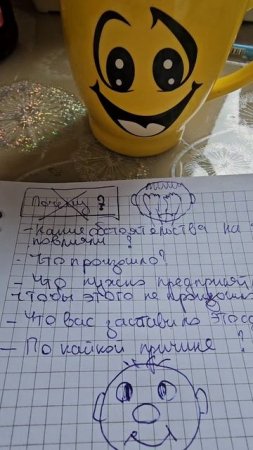 Почему ?
- Какие обстоятельства на
повлияли ?
- Что произошло?
- Что нужно предпринят
чтобы этого не произошло
- Что вас заставило это сд
- По какой причине ?